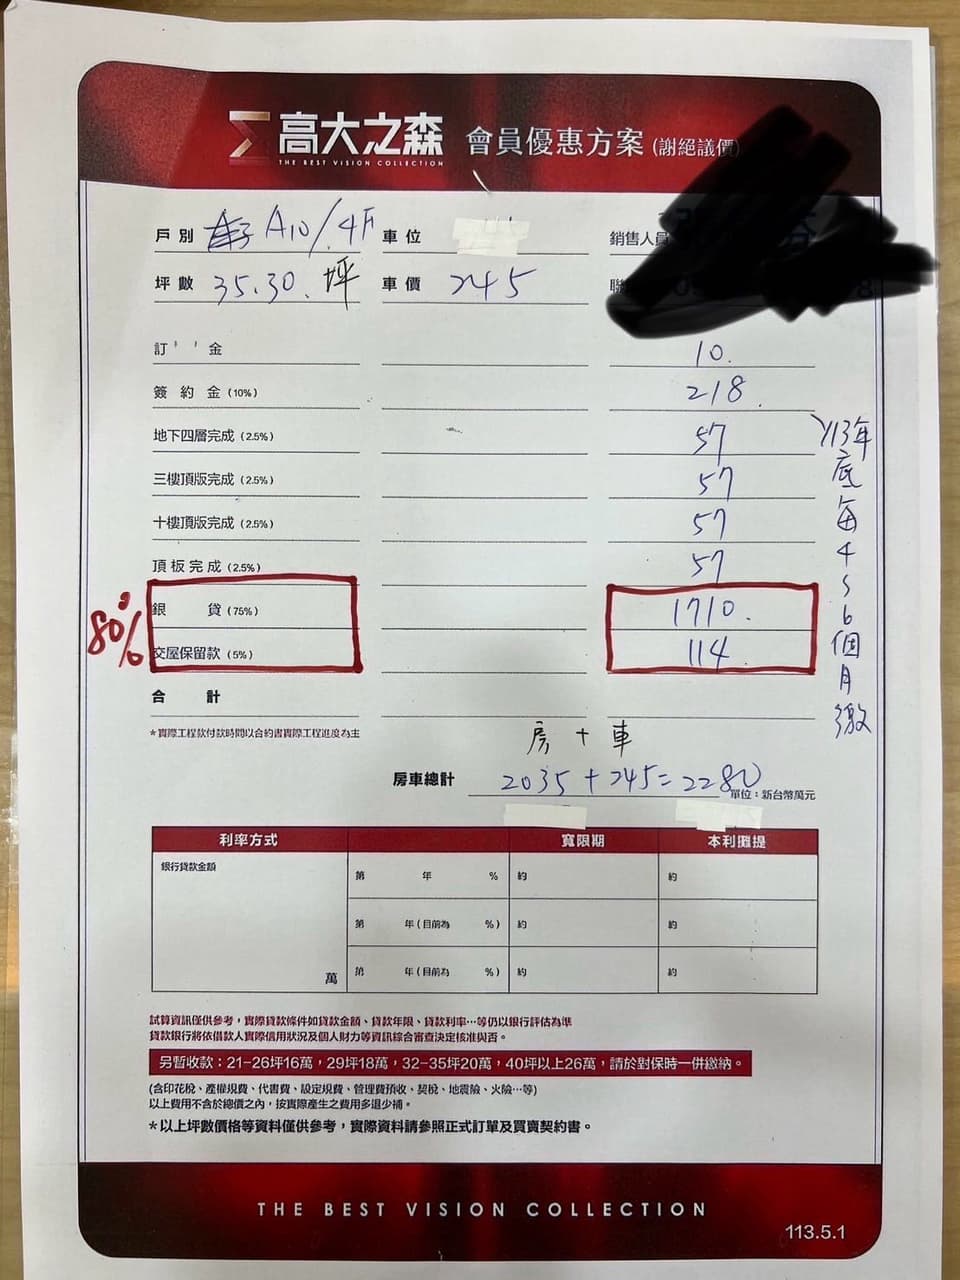 高大之森 會員優惠方案 (謝絕議價)
THE BEST VISION COLLECTION
戶別 A10/4F 車位 銷售人員
坪數 35.30.坪 車價 245
訂金 10.
簽約金 (10%) 218.
地下四層完成 (2.5%) 57
三樓頂版完成 (2.5%) 57
十樓頂版完成 (2.5%) 57
頂板完成 (2.5%) 57
113年底每4~6個月繳
80%
銀貸 (75%) 1710.
交屋保留款 (5%) 114
合計
*實際工程款付款時間以合約書實際工程進度為主
房+車
房車總計 2035+245=2280
單位:新台幣萬元
利率方式 寬限期 本利攤提
銀行貸款金額
第 年 % 約 約
第 年(目前為 %) 約 約
第 年(目前為 %) 約 約
萬
試算資訊僅供參考,實際貸款條件如貸款金額、貸款年限、貸款利率…等仍以銀行評估為準
貸款銀行將依借款人實際信用狀況及個人財力等資訊綜合審查決定核准與否。
另暫收款:21-26坪16萬,29坪18萬,32-35坪20萬,40坪以上26萬,請於對保時一併繳納。
(含印花稅、產權規費、代書費、設定規費、管理費預收、契稅、地震險、火險…等)
以上費用不含於總價之內,按實際產生之費用多退少補。
*以上坪數價格等資料僅供參考,實際資料請參照正式訂單及買賣契約書。
THE BEST VISION COLLECTION
113.5.1